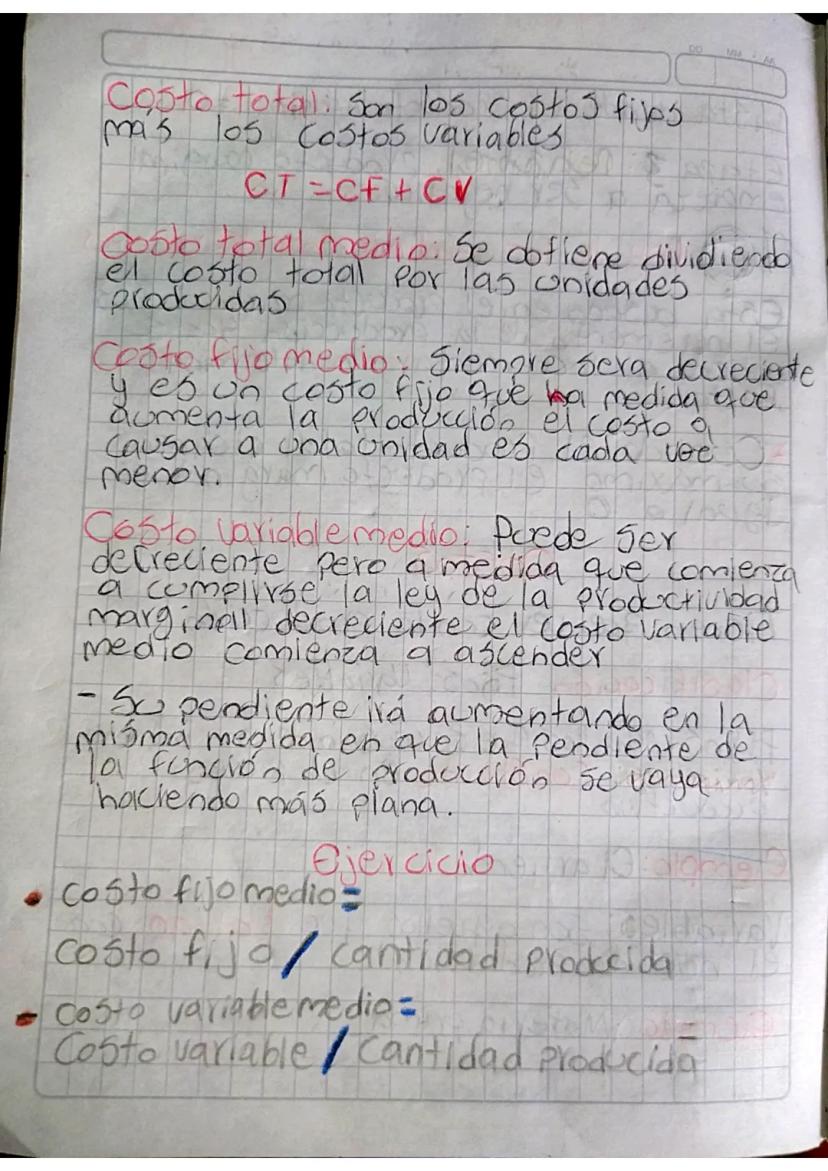 DD MM AA
Costo total: Son los costos fijos
más los costos variables
CT = CF + CV
Costo total medio: Se obtiene dividiendo
el costo total por las unidades
producidas
Costo fijo medio: Siempre sera decreciente
y es un costo fijo que a medida que
aumenta la producción el costo a
causar a una unidad es cada vez
menor.
Costo variable medio: Puede ser
decreciente pero a medida que comienza
a cumplirse la ley de la productividad
marginall decreciente el costo variable
medio comienza a ascender
- Su pendiente irá aumentando en la
misma medida en que la pendiente de
la función de producción se vaya
haciendo más plana.
Ejercicio
• costo fijo medio =
costo fijo / cantidad producida
- costo variable medio =
Costo variable / cantidad producida